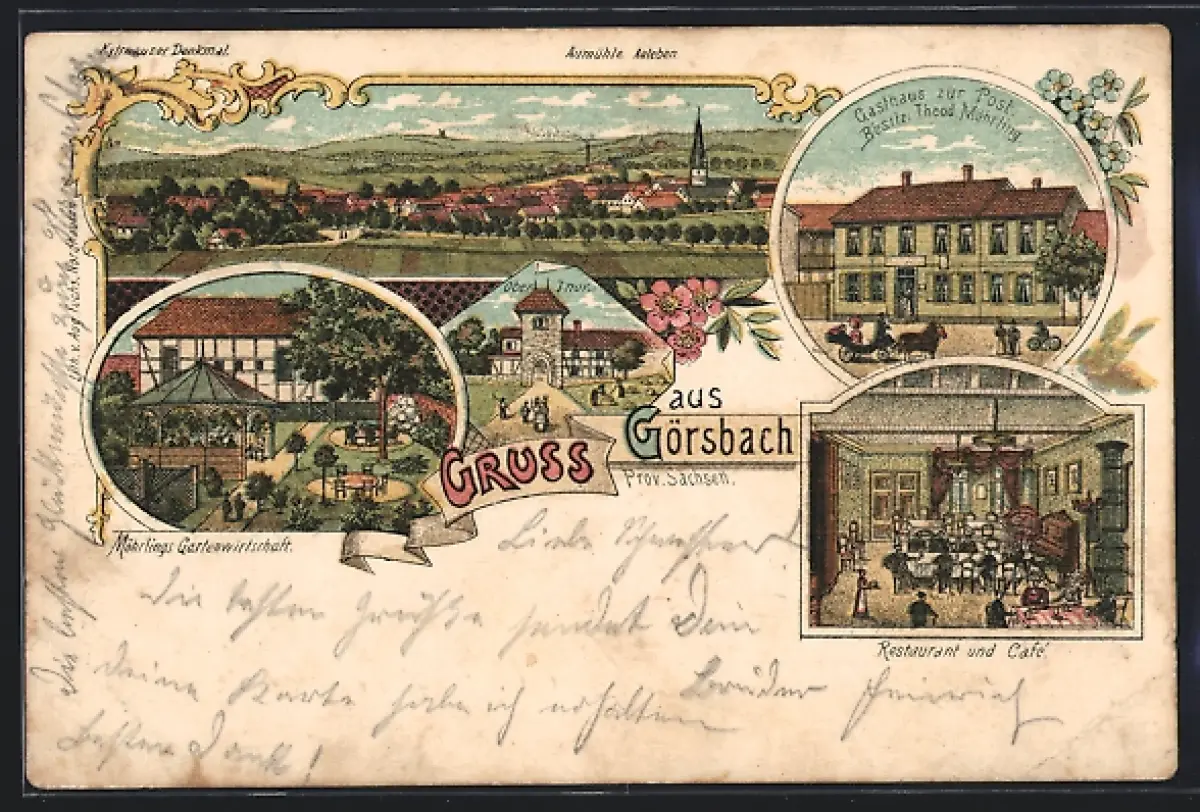 Kyffhäuser Denkmal.
Aumühle Auleben
Gasthaus zur Post.
Besitz. Theod. Möhrling
GRUSS
aus
Görsbach
Prov. Sachsen.
Möhrlings Gartenwirtschaft.
Restaurant und Café.
Liebe Schwester!
Die besten Grüße sendet Dein
Bruder Heinrich
deine Karte habe ich erhalten
besten Dank!